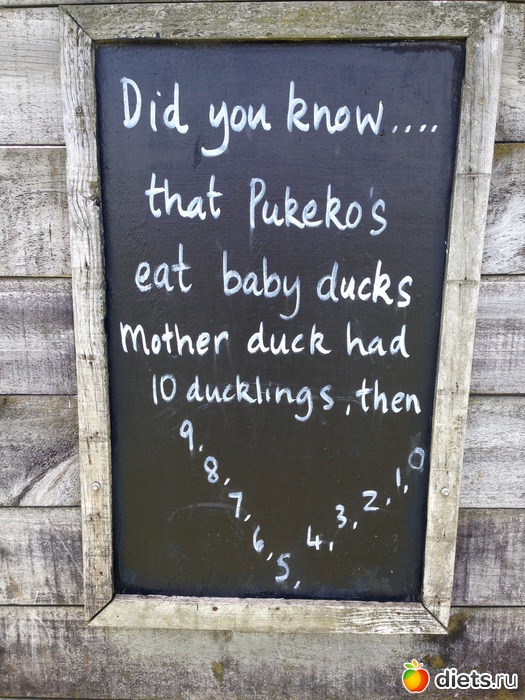 Did you know....
that Pukeko's
eat baby ducks
Mother duck had
10 ducklings, then
9,
8,
7,
6,
5,
4,
3,
2,
1,
0
diets.ru